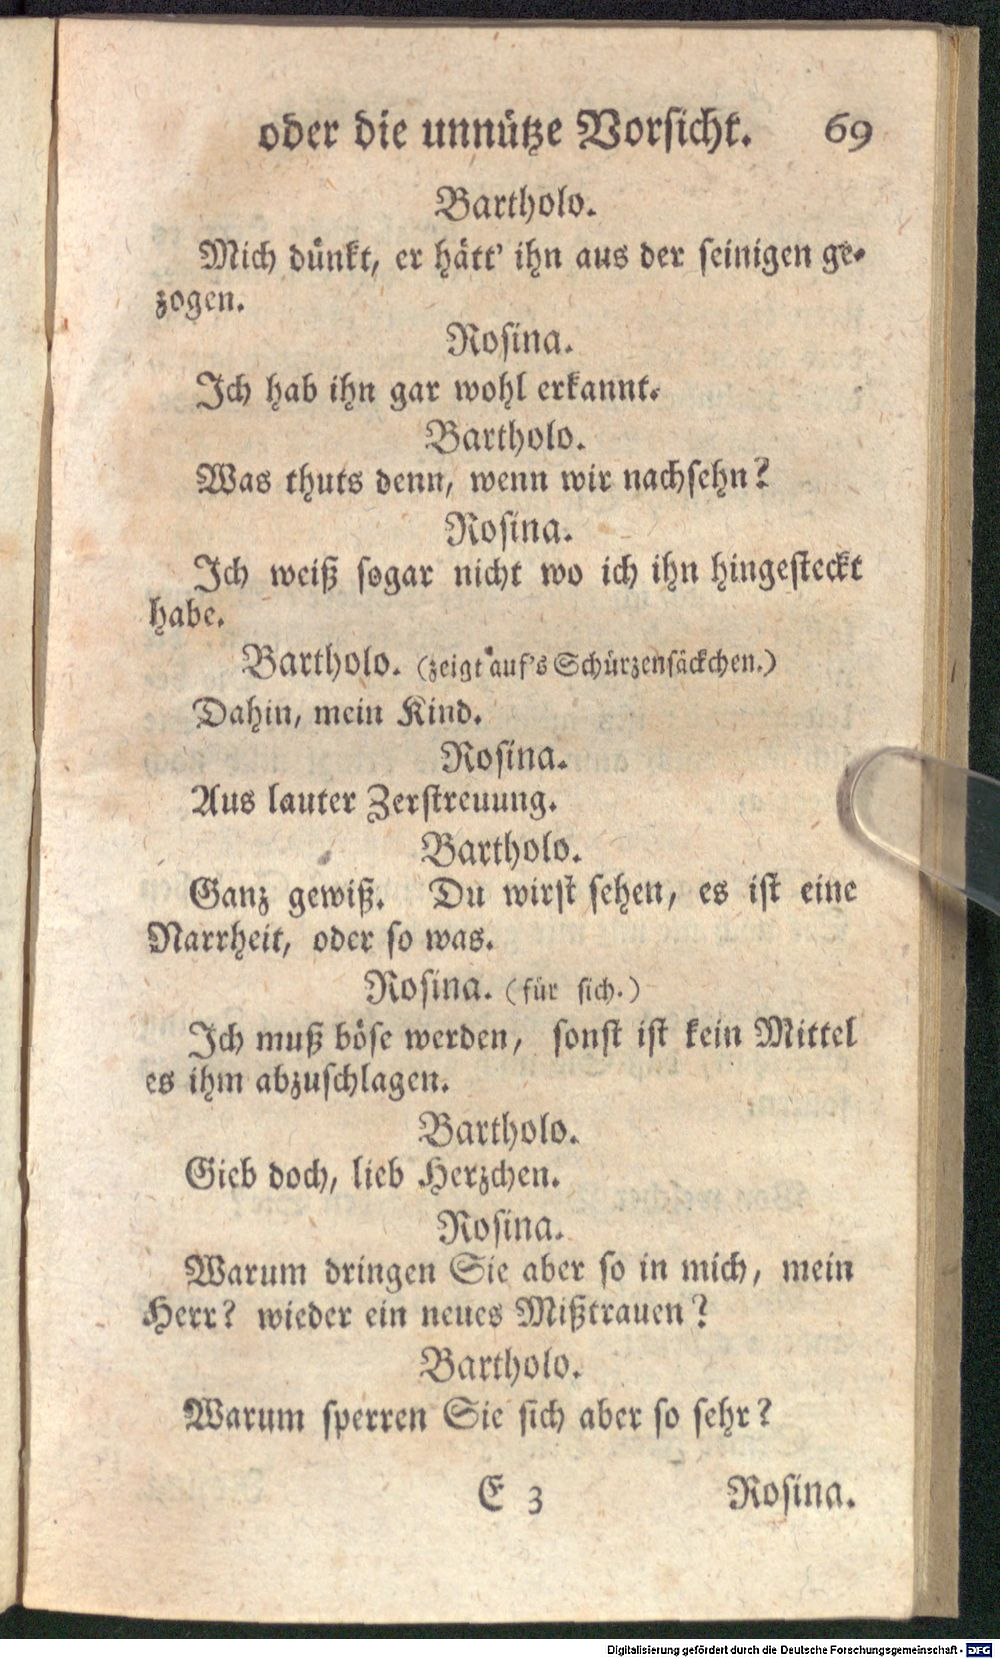 oder die unnütze Vorsicht. 69
Bartholo.
Mich dünkt, er hätt' ihn aus der seinigen ge-
zogen.
Rosina.
Ich hab ihn gar wohl erkannt.
Bartholo.
Was thuts denn, wenn wir nachsehn?
Rosina.
Ich weiß sogar nicht wo ich ihn hingesteckt
habe.
Bartholo. (zeigt auf's Schürzensäckchen.)
Dahin, mein Kind.
Rosina.
Aus lauter Zerstreuung.
Bartholo.
Ganz gewiß. Du wirst sehen, es ist eine
Narrheit, oder so was.
Rosina. (für sich.)
Ich muß böse werden, sonst ist kein Mittel
es ihm abzuschlagen.
Bartholo.
Gieb doch, lieb Herzchen.
Rosina.
Warum dringen Sie aber so in mich, mein
Herr? wieder ein neues Mißtrauen?
Bartholo.
Warum sperren Sie sich aber so sehr?
E 3 Rosina.
Digitalisierung gefördert durch die Deutsche Forschungsgemeinschaft - DFG